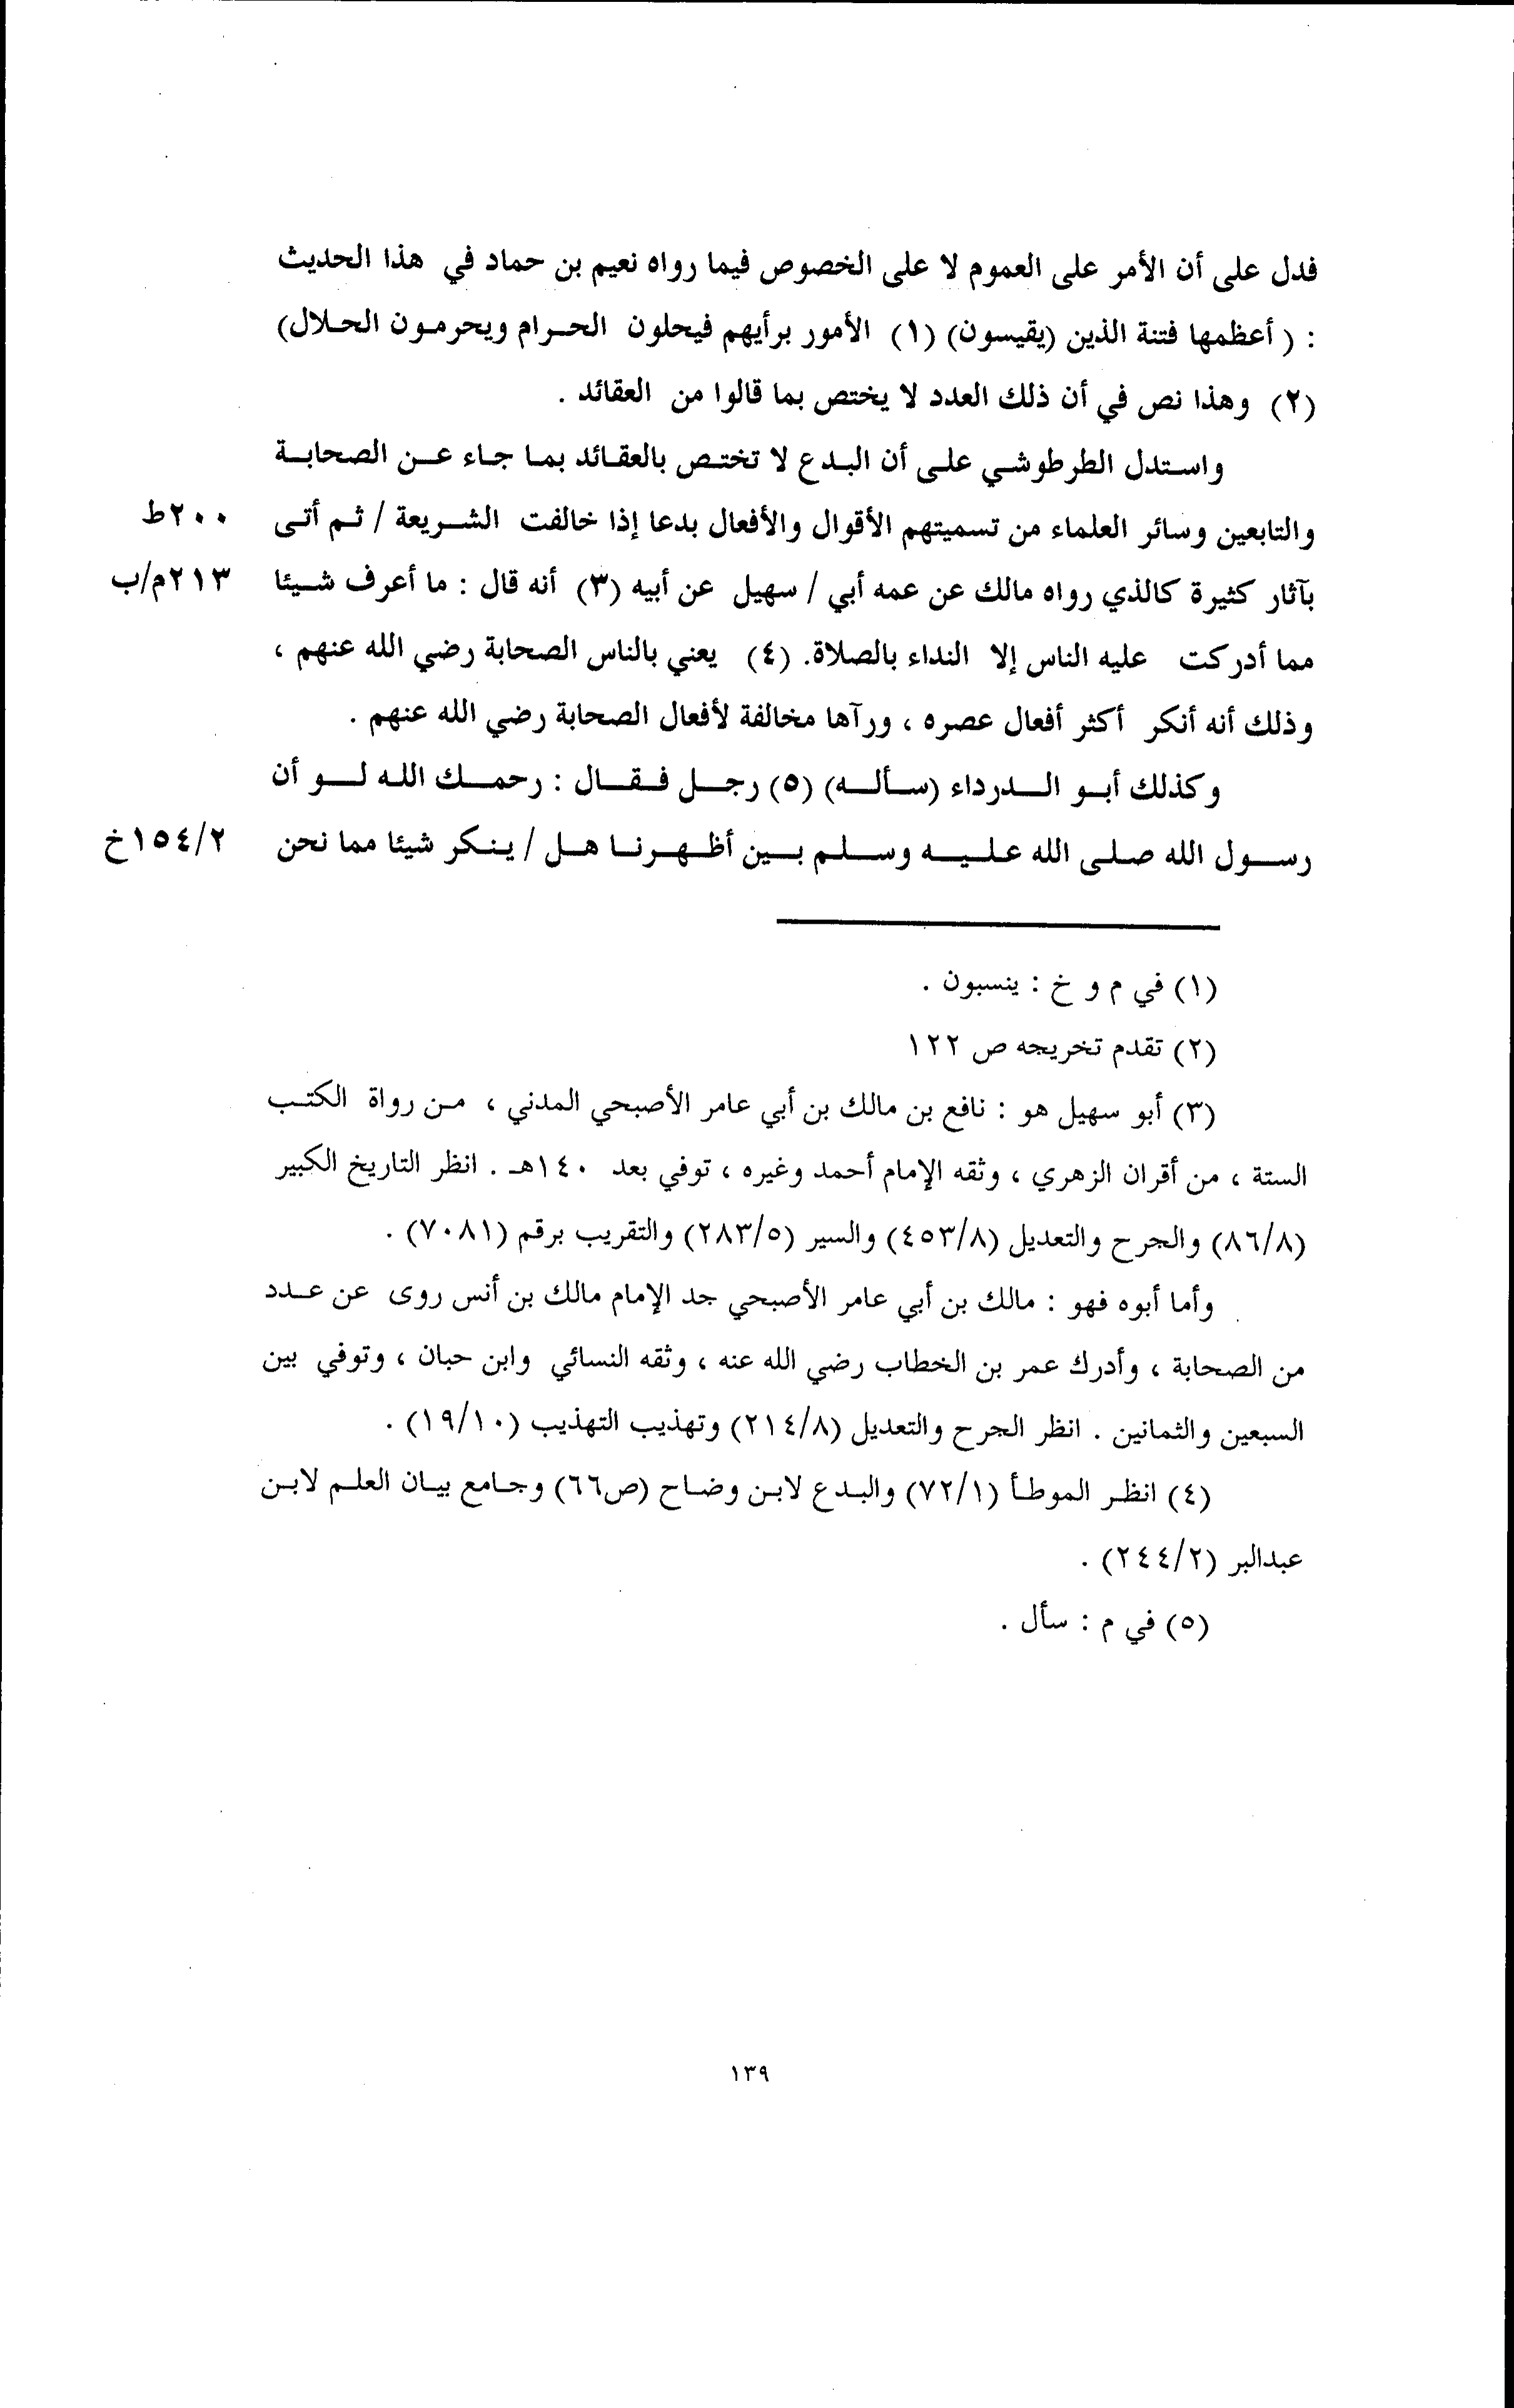 فدل على أن الأمر على العموم لا على الخصوص فيما رواه نعيم بن حماد في هذا الحديث
: ( أعظمها فتنة الذين (يقيسون) (١) الأمور برأيهم فيحلون الحرام ويحرمون الحلال)
(٢) وهذا نص في أن ذلك العدد لا يختص بما قالوا من العقائد .
واستدل الطرطوشي على أن البدع لا تختص بالعقائد بما جاء عن الصحابة
والتابعين وسائر العلماء من تسميتهم الأقوال والأفعال بدعا إذا خالفت الشريعة / ثم أتى ٢٠٠ط
بآثار كثيرة كالذي رواه مالك عن عمه أبي / سهيل عن أبيه (٣) أنه قال : ما أعرف شيئا ٢١٣م/ب
مما أدركت عليه الناس إلا النداء بالصلاة. (٤) يعني بالناس الصحابة رضي الله عنهم ،
وذلك أنه أنكر أكثر أفعال عصره ، ورآها مخالفة لأفعال الصحابة رضي الله عنهم .
وكذلك أبو الدرداء (سأله) (٥) رجل فقال : رحمك الله لو أن
رسول الله صلى الله عليه وسلم بين أظهرنا هل / ينكر شيئا مما نحن ١٥٤/٢خ
(١) في م و خ : ينسبون .
(٢) تقدم تخريجه ص ١٢٢
(٣) أبو سهيل هو : نافع بن مالك بن أبي عامر الأصبحي المدني ، من رواة الكتب
الستة ، من أقران الزهري ، وثقه الإمام أحمد وغيره ، توفي بعد ١٤٠هـ . انظر التاريخ الكبير
(٨٦/٨) والجرح والتعديل (٤٥٣/٨) والسير (٢٨٣/٥) والتقريب برقم (٧٠٨١) .
وأما أبوه فهو : مالك بن أبي عامر الأصبحي جد الإمام مالك بن أنس روى عن عدد
من الصحابة ، وأدرك عمر بن الخطاب رضي الله عنه ، وثقه النسائي وابن حبان ، وتوفي بين
السبعين والثمانين . انظر الجرح والتعديل (٢١٤/٨) وتهذيب التهذيب (١٩/١٠) .
(٤) انظر الموطأ (٧٢/١) والبدع لابن وضاح (ص٦٦) وجامع بيان العلم لابن
عبدالبر (٢٤٤/٢) .
(٥) في م : سأل .
١٣٩